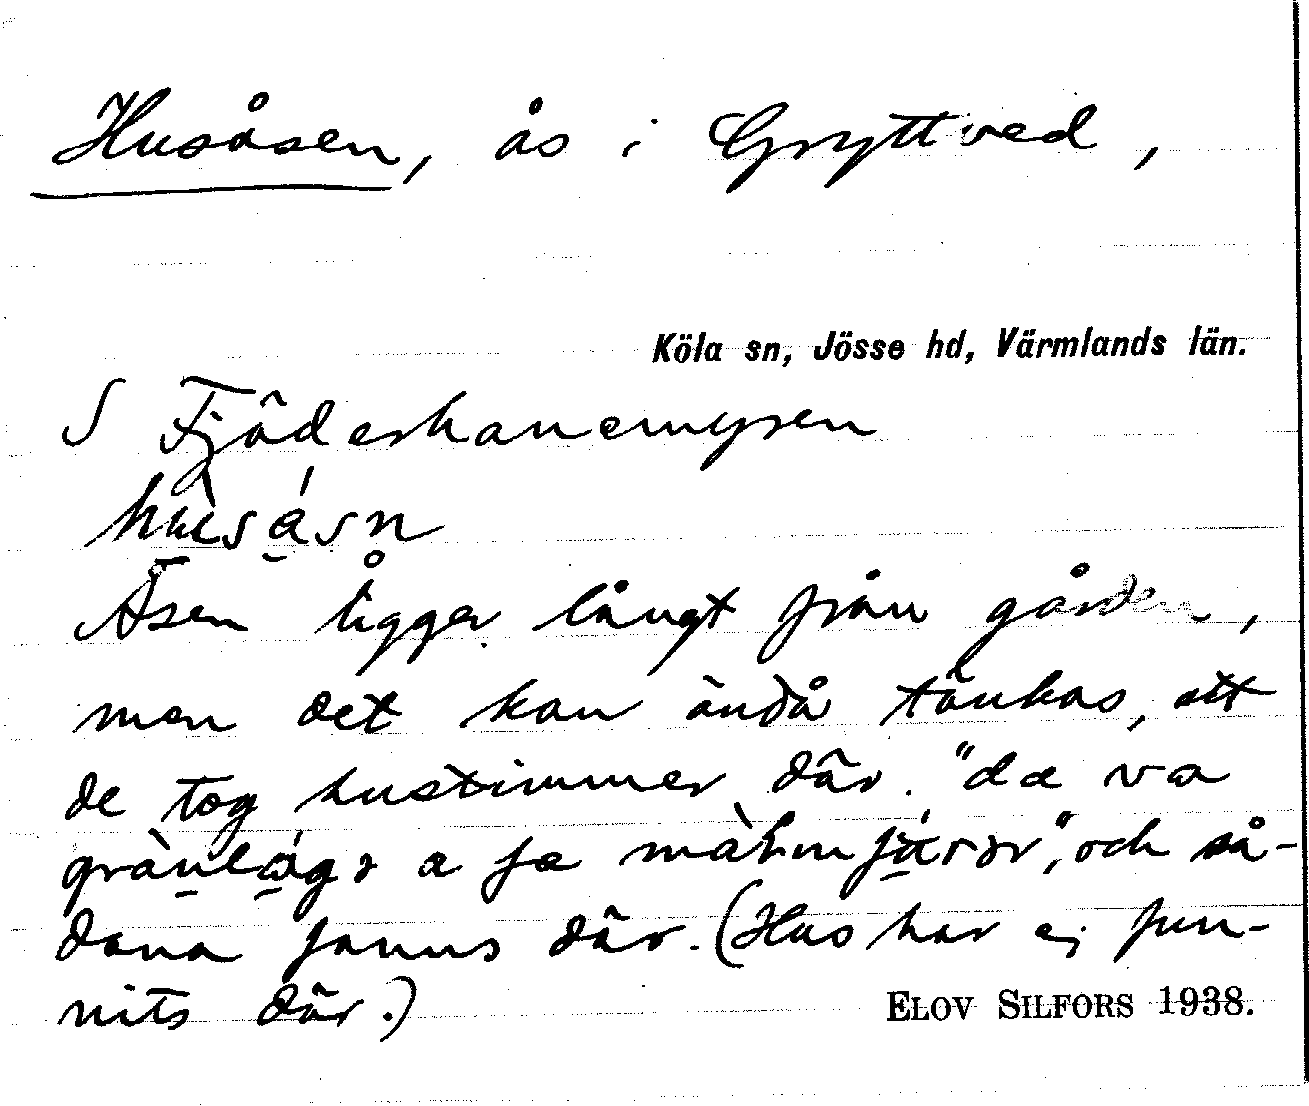 Husåsen, ås i Gryttved,
Köla sn, Jösse hd, Värmlands län.
S Fjäderhanemyren
hùsásn
Åsen ligger långt från gården,
men det kan ändå tänkas, att
de tog hustimmer där. "dæ va
a fæ och så-
dana fanns där. (Hus har ej fun-
nits där.)
ELOV SILFORS 1938.